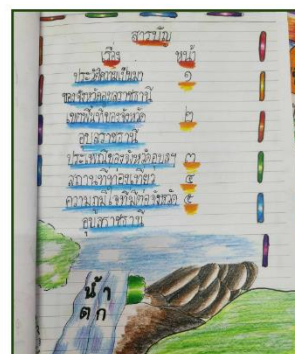 สารบัญ
เรื่อง หน้า
ประวัติความเป็นมา ๑
ของจังหวัดอุบลราชธานี
เทศพื้นที่ของจังหวัด ๒
อุบลราชธานี
ประเพณีของจังหวัดอุบลฯ ๓
สถานที่ท่องเที่ยว ๔
ความภูมิใจที่มีต่อจังหวัด ๕
อุบลราชธานี
น้ำ
ตก